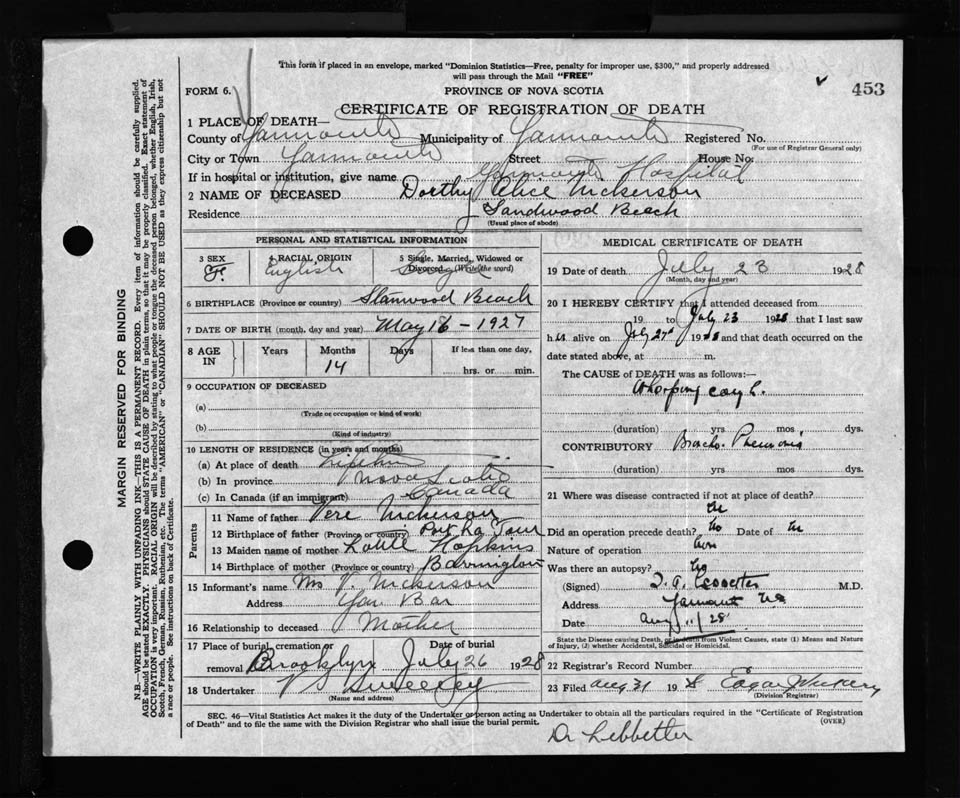 This form if placed in an envelope, marked "Dominion Statistics—Free, penalty for improper use, $300," and properly addressed
will pass through the Mail "FREE"
FORM 6.
PROVINCE OF NOVA SCOTIA
453
CERTIFICATE OF REGISTRATION OF DEATH
1 PLACE OF DEATH—
County of Yarmouth Municipality of Yarmouth Registered No.
(For use of Registrar General only)
City or Town Yarmouth Street House No.
If in hospital or institution, give name Yarmouth Hospital
2 NAME OF DECEASED Dorthy Alice Nickerson
Residence Sandwood Beach
(Usual place of abode)
PERSONAL AND STATISTICAL INFORMATION
3 SEX F. 4 RACIAL ORIGIN English 5 Single, Married, Widowed or Divorced (Write the word) Single
6 BIRTHPLACE (Province or country) Stanwood Beach
7 DATE OF BIRTH (month, day and year) May 16 - 1927
8 AGE IN Years Months 14 Days If less than one day, hrs. or min.
9 OCCUPATION OF DECEASED
(a)
(Trade or occupation or kind of work)
(b)
(Kind of industry)
10 LENGTH OF RESIDENCE (in years and months)
(a) At place of death
(b) In province Nova Scotia
(c) In Canada (if an immigrant) Canada
Parents
11 Name of father Vere Nickerson
12 Birthplace of father (Province or country) Port La Tour
13 Maiden name of mother Hopkins
14 Birthplace of mother (Province or country) Barrington
15 Informant's name Mrs V. Nickerson
Address Yar Bar
16 Relationship to deceased Mother
17 Place of burial, cremation or removal Brooklyn Date of burial July 26 1928
18 Undertaker V S Sweeney
(Name and address)
MEDICAL CERTIFICATE OF DEATH
19 Date of death July 23 1928
(Month, day and year)
20 I HEREBY CERTIFY that I attended deceased from
19 to July 23 1928 that I last saw
h alive on July 1928 and that death occurred on the
date stated above, at m.
The CAUSE of DEATH was as follows:—
Whooping cough.
(duration) yrs mos dys.
CONTRIBUTORY Broncho. Pneumonia
(duration) yrs mos dys.
21 Where was disease contracted if not at place of death?
Did an operation precede death? No Date of
Nature of operation
Was there an autopsy? No
(Signed) M.D.
Address Yarmouth NS
Date Aug 11/28
State the Disease causing Death, or in death from Violent Causes, state (1) Means and Nature
of Injury, (2) whether Accidental, Suicidal or Homicidal.
22 Registrar's Record Number
23 Filed Aug 31 19 Edgar
(Division Registrar)
SEC. 46—Vital Statistics Act makes it the duty of the Undertaker or person acting as Undertaker to obtain all the particulars required in the "Certificate of Registration
of Death" and to file the same with the Division Registrar who shall issue the burial permit.
(OVER)
Dr Lebbetter
MARGIN RESERVED FOR BINDING
N.B.—WRITE PLAINLY WITH UNFADING INK—THIS IS A PERMANENT RECORD. Every item of information should be carefully supplied.
AGE should be stated EXACTLY. PHYSICIANS should STATE CAUSE OF DEATH in plain terms, so that it may be properly classified. Exact statement of
OCCUPATION is very important. RACIAL ORIGIN will be described by stating to what people or tongue the deceased person belonged, whether English, Irish,
Scotch, French, German, Russian, Ruthenian, etc. The terms "AMERICAN" or "CANADIAN" SHOULD NOT BE USED as they express citizenship but not
a race or people. See instructions on back of Certificate.